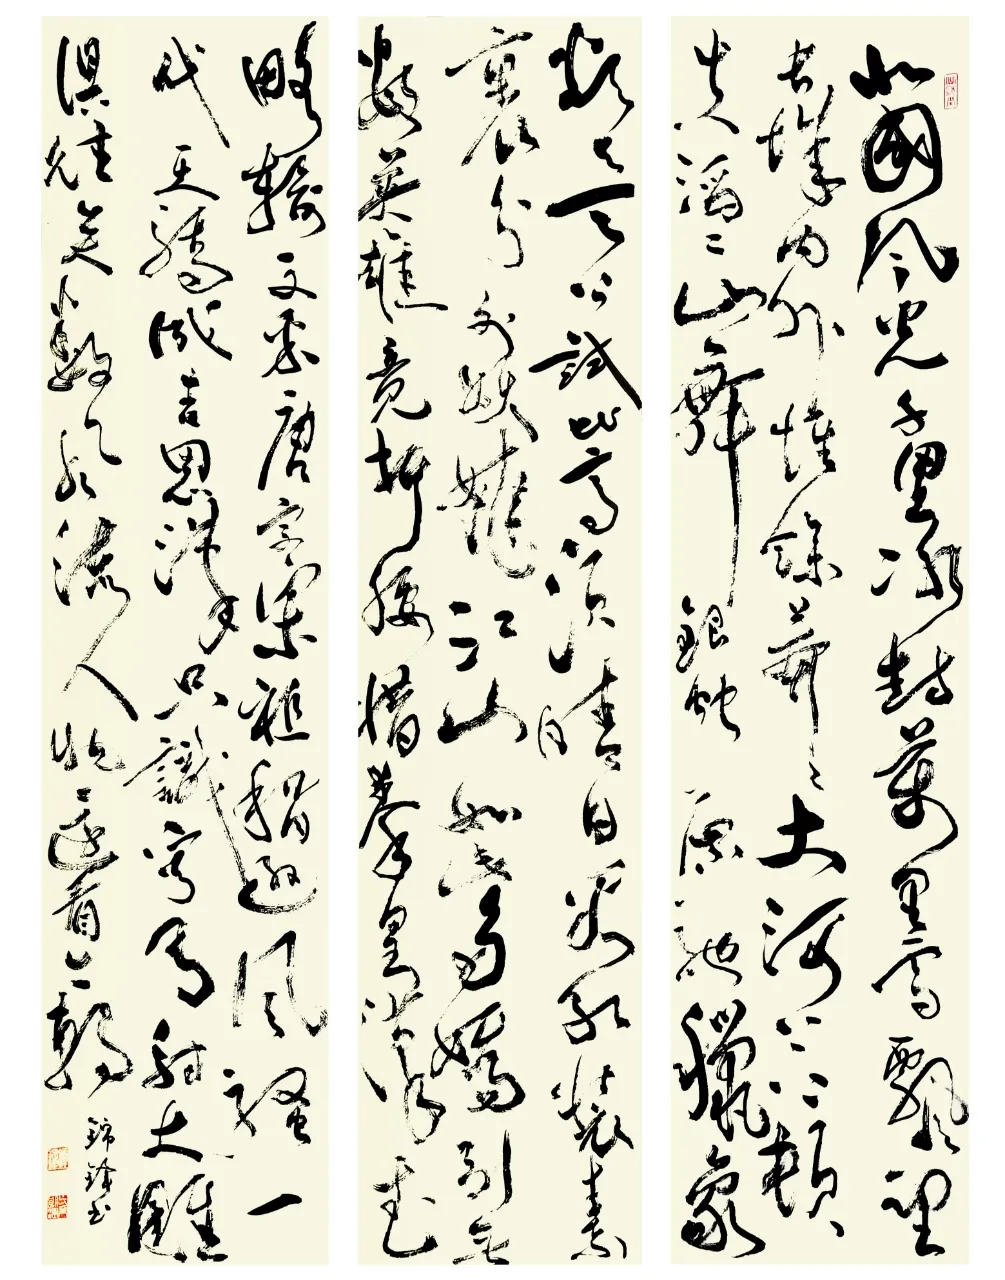 北國風光千里冰封萬里雪飄望
長城內外惟餘莽々大河上下頓
失滔々山舞銀蛇原馳蠟象
欲与天公試比高須晴日看紅裝素
裹分外妖嬈江山如此多嬌引無
數英雄竟折腰惜秦皇漢武
略輸文采唐宗宋祖稍遜風騷一
代天驕成吉思汗只識弯弓射大雕
俱往矣數風流人物還看今朝
錦 书